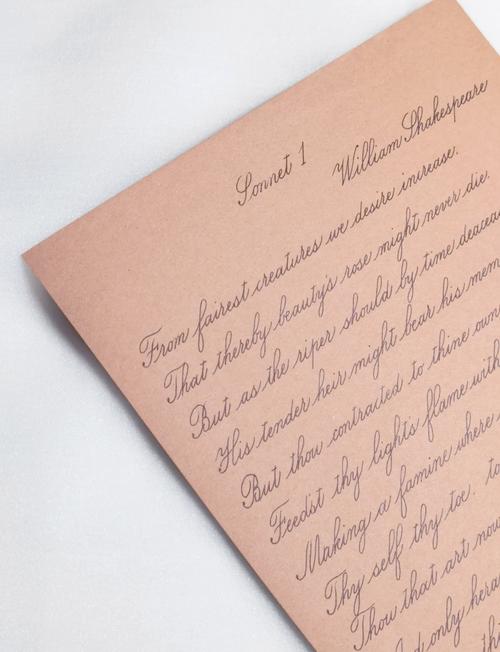 Sonnet 1 William Shakespeare
From fairest creatures we desire increase.
That thereby beauty's rose might never die.
But as the riper should by time
His tender heir might bear his
But thou contracted to thine
Feedst thy lights flame
Making a famine where
Thy self thy toe.
Thou that art
only